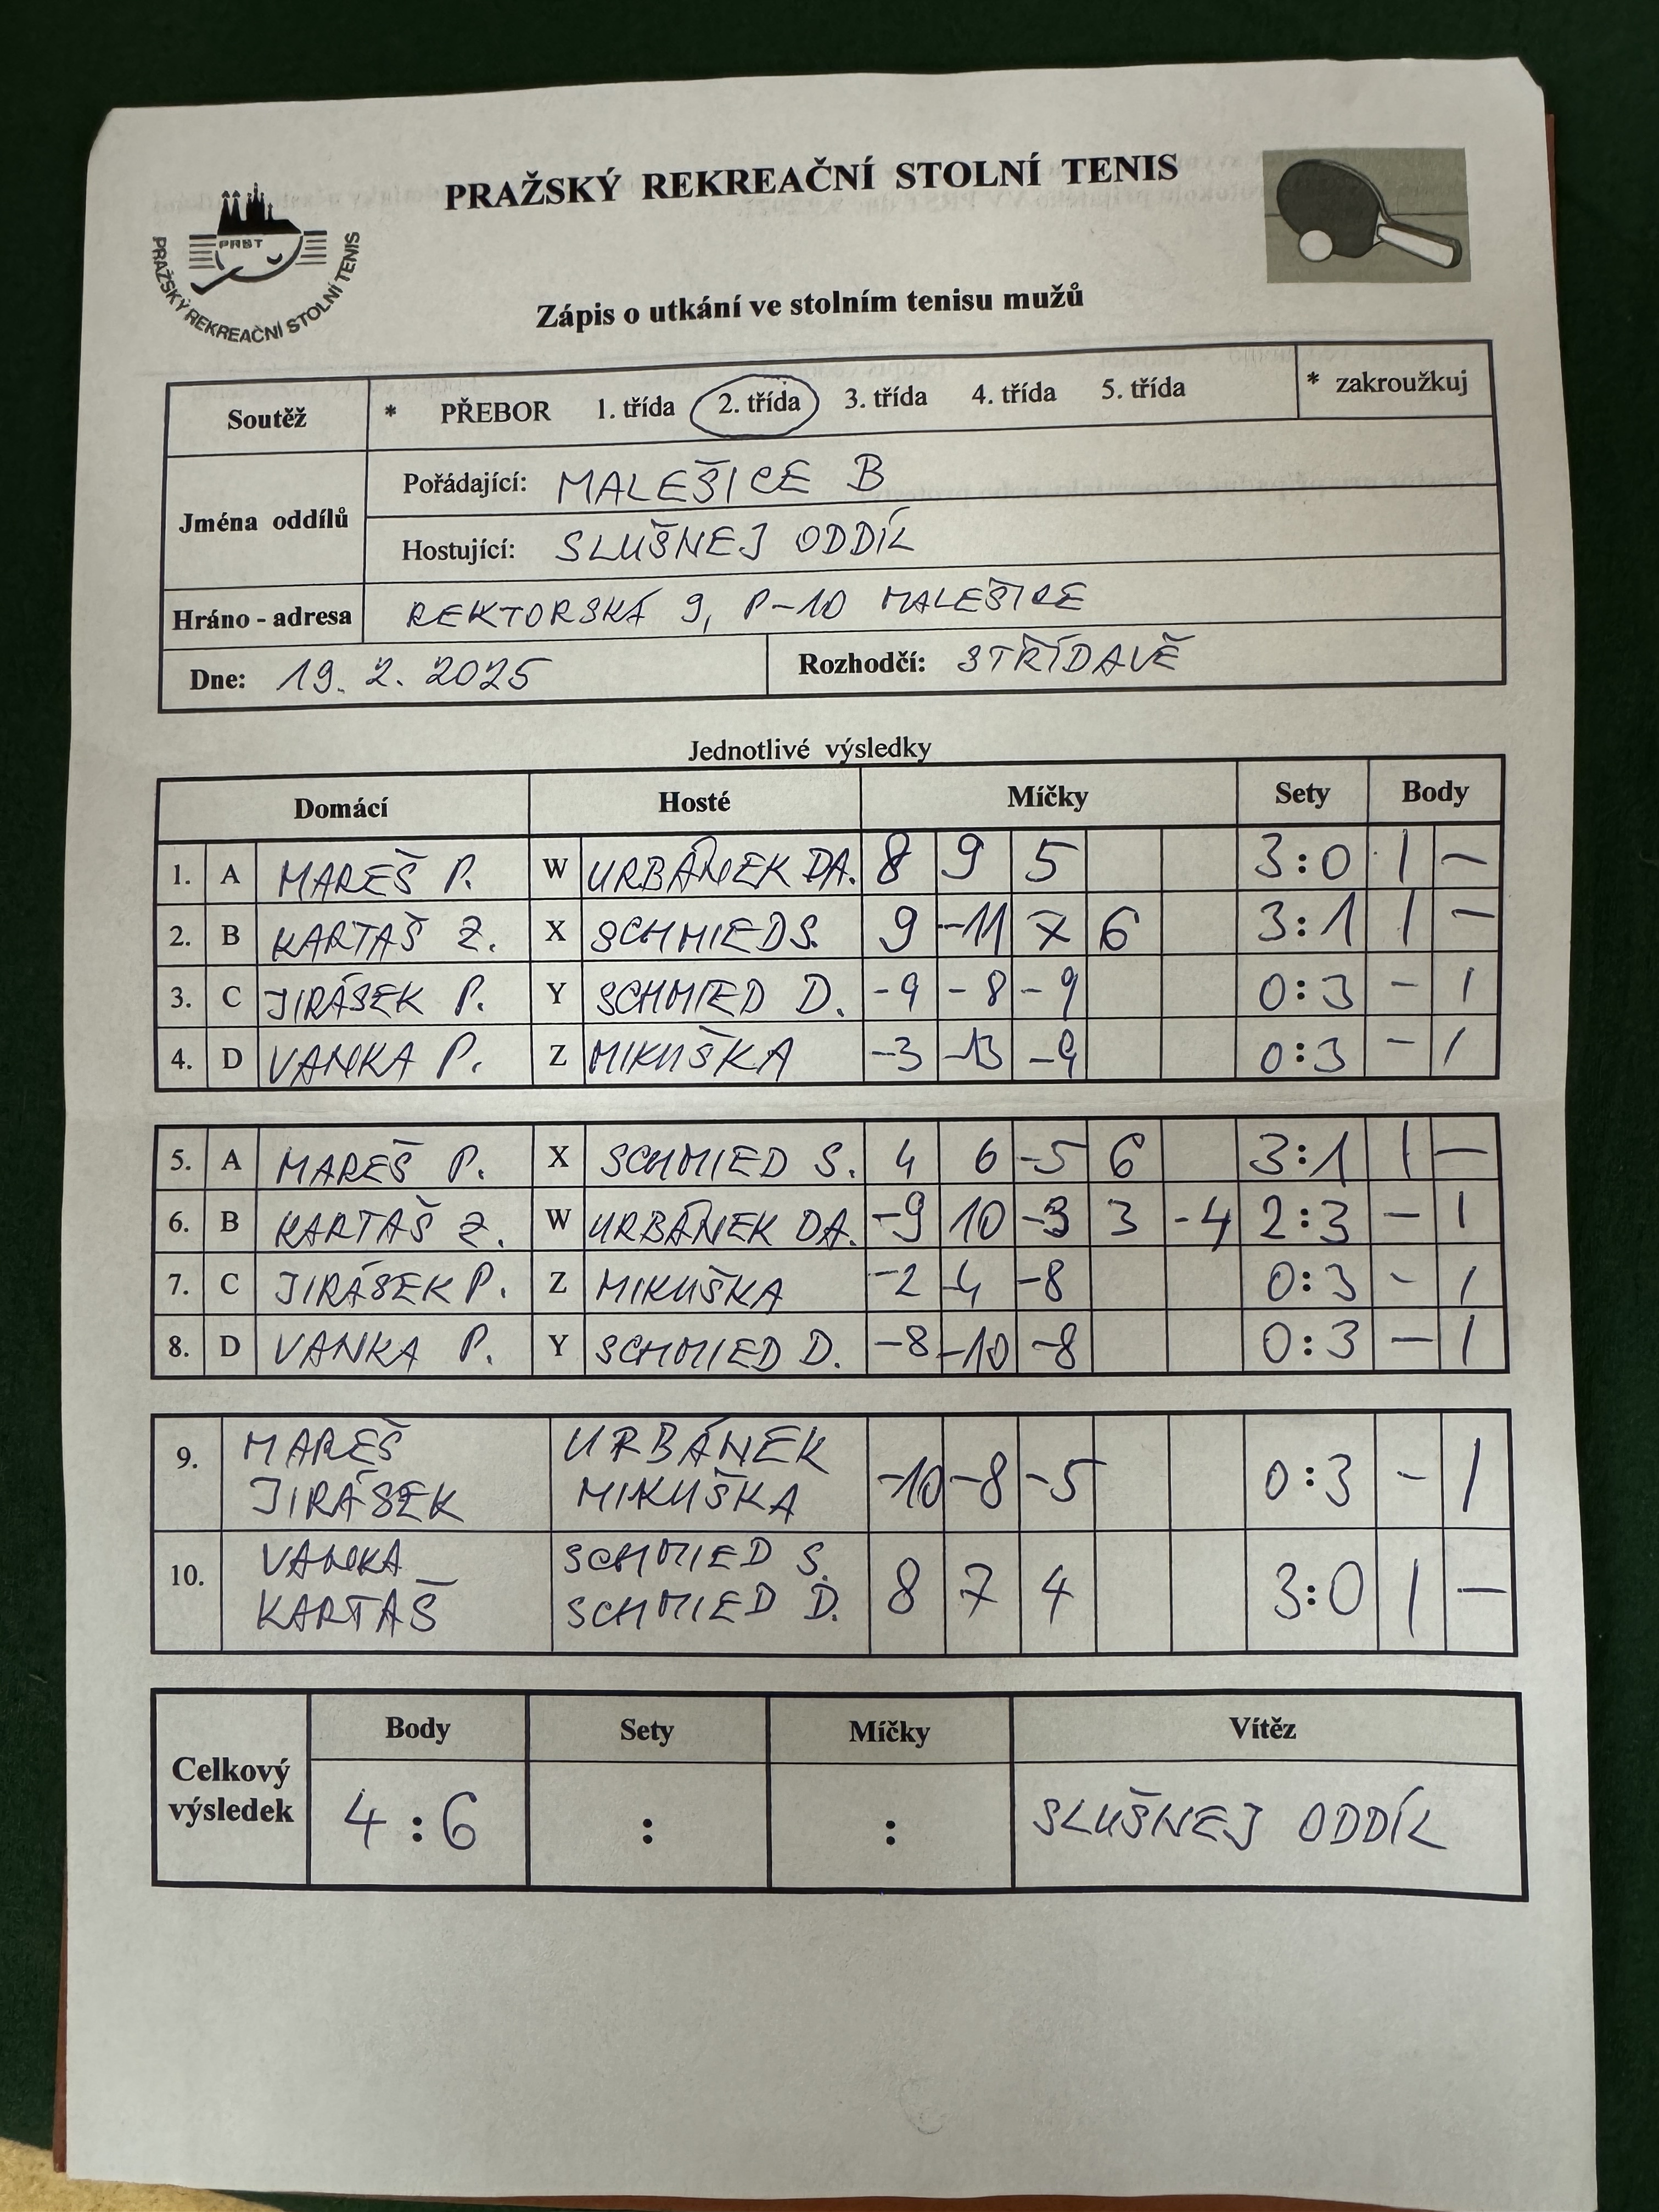 PRAŽSKÝ REKREAČNÍ STOLNÍ TENIS
PRST
PRAŽSKÝ REKREAČNÍ STOLNÍ TENIS
Zápis o utkání ve stolním tenisu mužů
Soutěž * PŘEBOR 1. třída 2. třída 3. třída 4. třída 5. třída * zakroužkuj
Jména oddílů
Pořádající: MALEŠICE B
Hostující: SLUŠNEJ ODDÍL
Hráno - adresa REKTORSKÁ 9, P-10 MALEŠICE
Dne: 19. 2. 2025 Rozhodčí: STŘÍDAVĚ
Jednotlivé výsledky
Domácí Hosté Míčky Sety Body
1. A MAREŠ P. W URBÁNEK DA. 8 9 5 3:0 1 -
2. B KARTAŠ Z. X SCHMIED S. 9 -11 7 6 3:1 1 -
3. C JIRÁSEK P. Y SCHMIED D. -9 -8 -9 0:3 - 1
4. D VANKA P. Z MIKUŠKA -3 -13 -9 0:3 - 1
5. A MAREŠ P. X SCHMIED S. 4 6 -5 6 3:1 1 -
6. B KARTAŠ Z. W URBÁNEK DA. -9 10 -3 3 -4 2:3 - 1
7. C JIRÁSEK P. Z MIKUŠKA -2 -4 -8 0:3 - 1
8. D VANKA P. Y SCHMIED D. -8 -10 -8 0:3 - 1
9. MAREŠ URBÁNEK -10 -8 -5 0:3 - 1
JIRÁSEK MIKUŠKA
10. VANKA SCHMIED S. 8 7 4 3:0 1 -
KARTAŠ SCHMIED D.
Celkový výsledek
Body Sety Míčky Vítěz
4:6 : : SLUŠNEJ ODDÍL